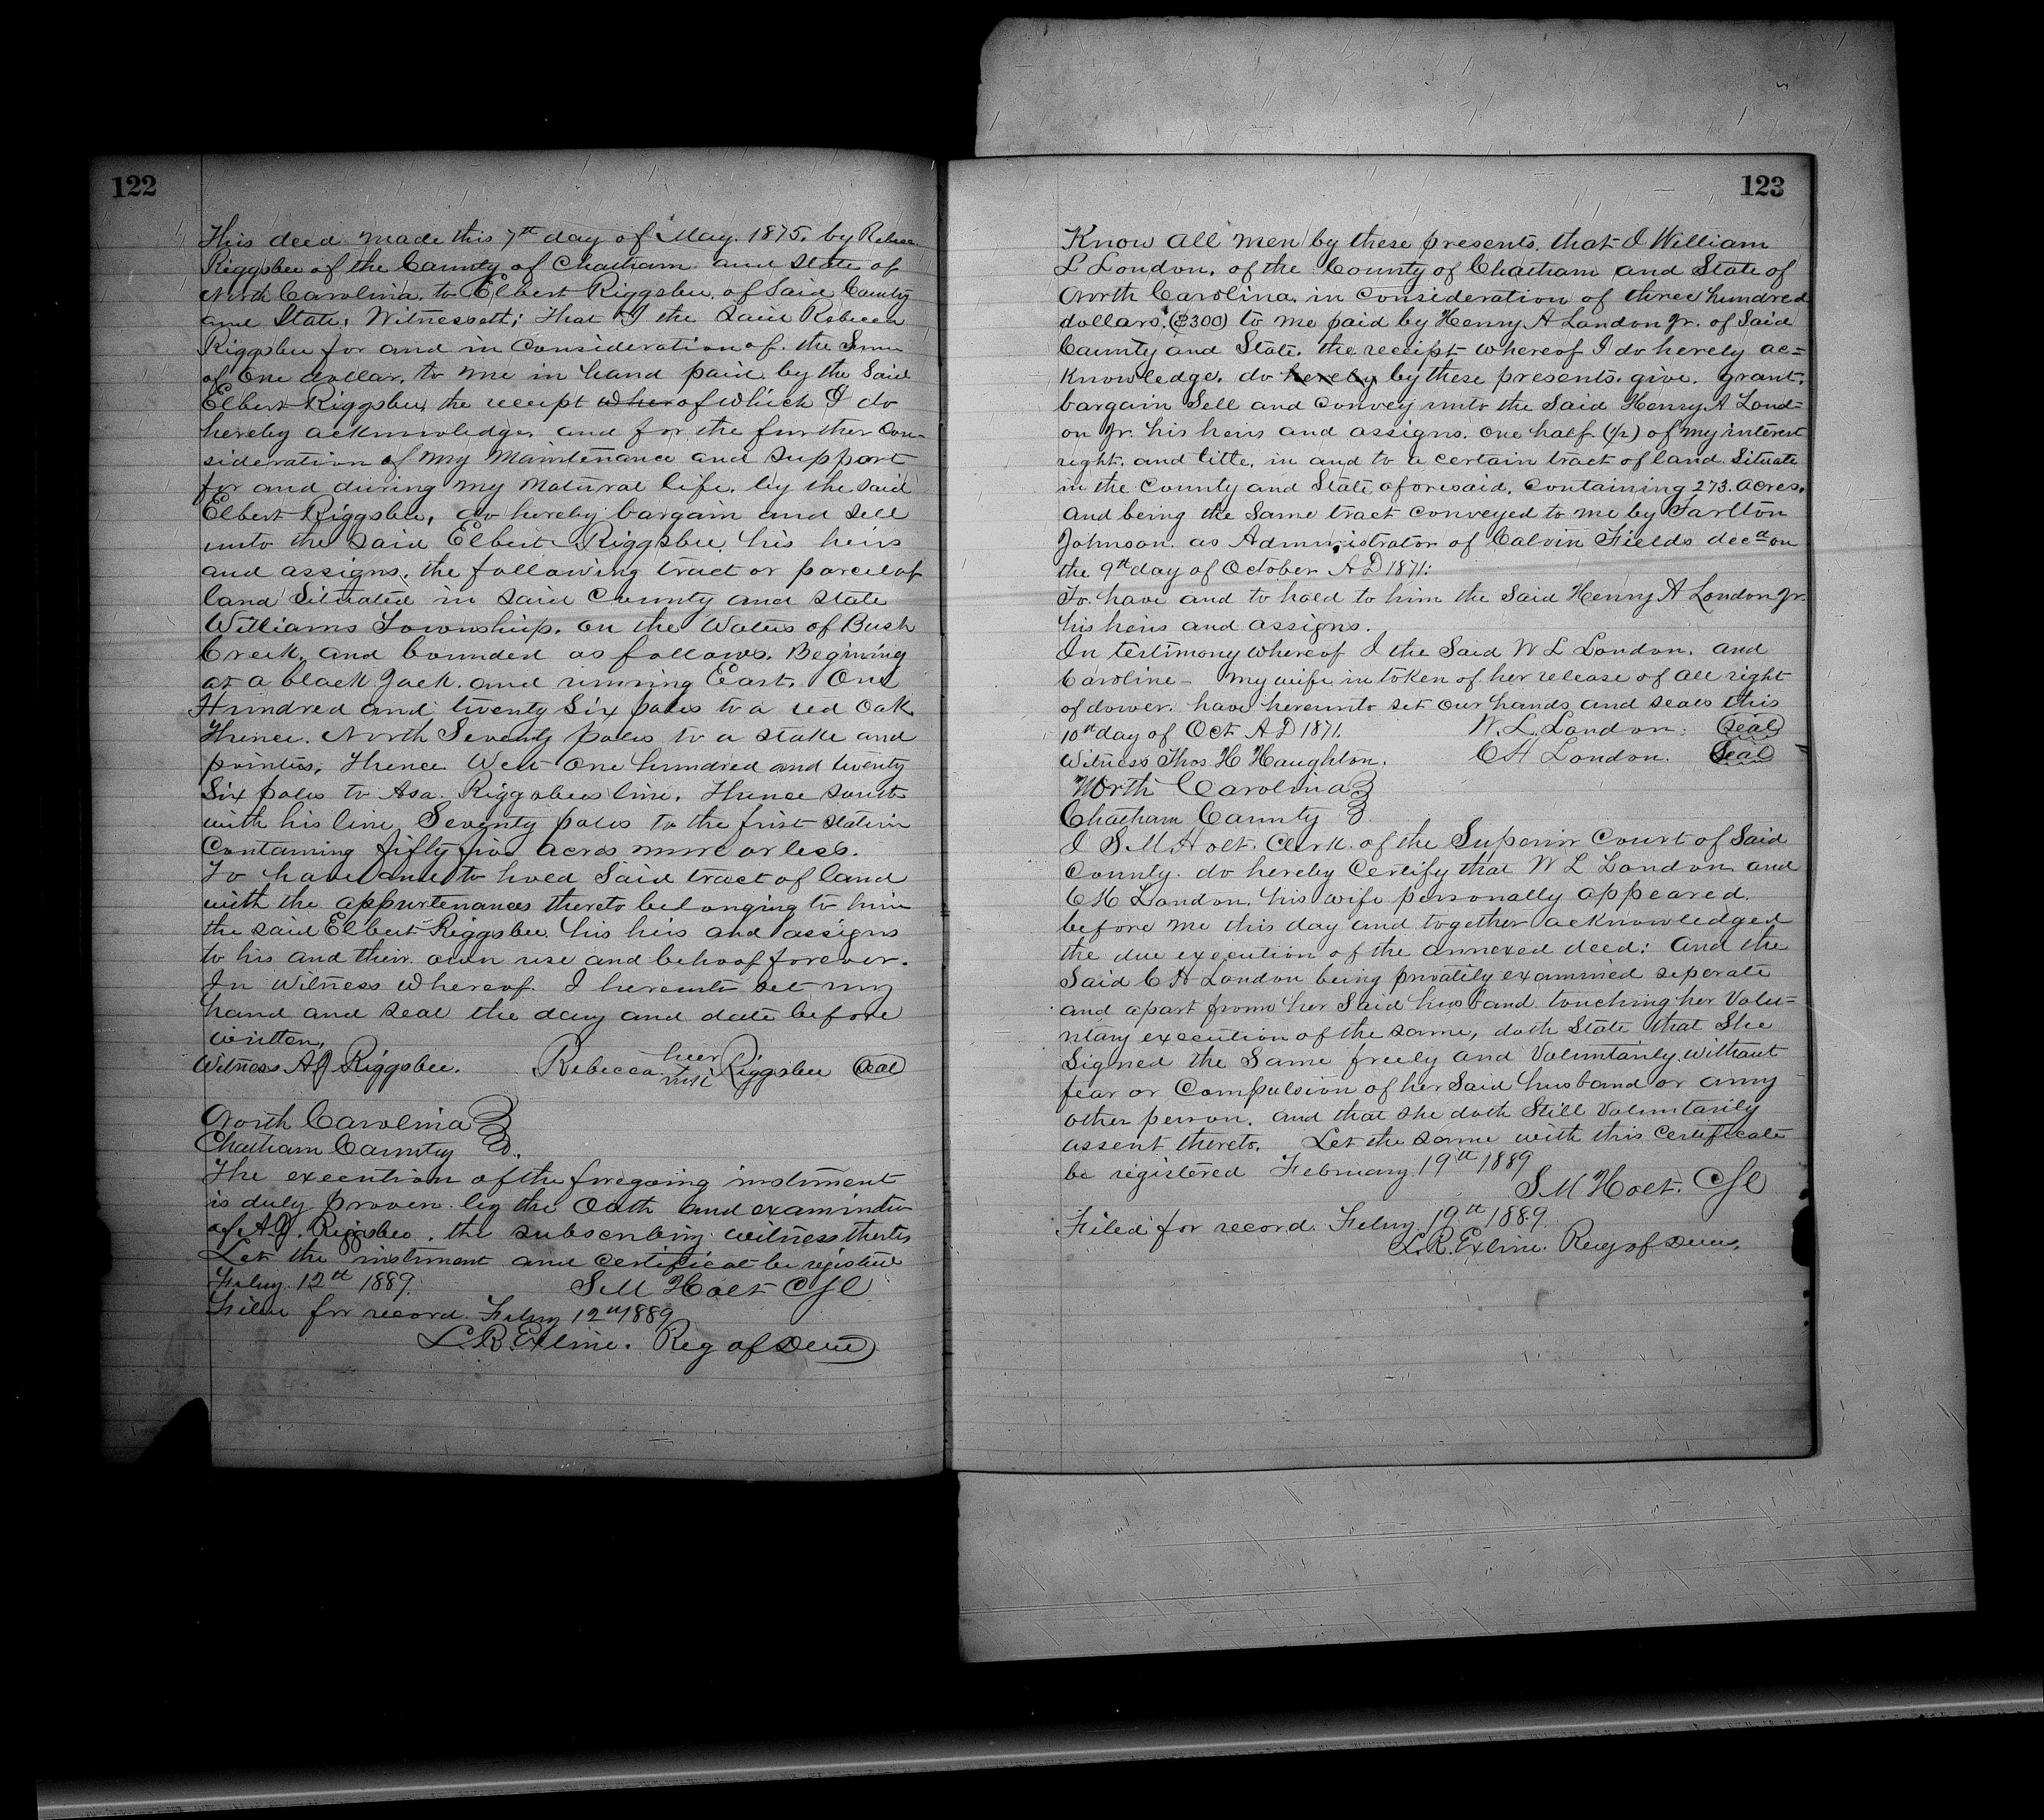 122
This deed made this 7th day of May. 1875, by Rebecca
Riggsbee of the County of Chatham and State of
North Carolina, to Elbert Riggsbee, of Said County
and State, Witnesseth; That I the Said Rebecca
Riggsbee for and in Consideration of the Sum
of One dollar, to me in hand paid by the Said
Elbert Riggsbee, the receipt wher of which I do
hereby acknowledge, and for the further Con-
sideration of my Maintenance and Support
for and during my natural life, by the said
Elbert Riggsbee, do hereby bargain and Sell
unto the Said Elbert Riggsbee, his heirs
and assigns, the following tract or parcel of
land Situated in Said County and State
Williams Township, on the Waters of Bush
Creek, and bounded as follows. Begining
at a black Jack, and running East, One
Hundred and twenty Six poles to a red Oak
Thence. North Seventy poles to a stake and
pointers, Thence West One hundred and twenty
Six poles to Asa. Riggsbees line, Thence South
with his line Seventy poles to the first Station
Containing fifty five acres more or less.
To have and to hold Said tract of land
with the appurtenances thereto belonging to him
the said Elbert Riggsbee his heirs and assigns
to his and their own use and behoof forever.
In Witness whereof I hereunto Set my
hand and seal the day and date before
written,
Witness A J Riggsbee. Rebecca her Riggsbee Seal
North Carolina
Chatham County
The execution of the foregoing instrument
is duly proven by the Oath and examination
of A. J. Riggsbee, the subscribing witness thereto
Let the instrument and certificate be registered
Feby. 12th 1889. S M Holt C S C
Filed for record Feby 12th 1889
L. R. Exline. Reg of Deeds
123
Know all men by these presents, that I William
L London, of the County of Chatham and State of
North Carolina, in Consideration of three hundred
dollars, ($300) to me paid by Henry A London Jr. of Said
County and State, the receipt whereof I do hereby ac=
knowledge, do hereby by these presents, give, grant,
bargain Sell and Convey unto the Said Henry A Lond=
on Jr. his heirs and assigns. One half (1/2) of my interest
right, and title, in and to a certain tract of land Situate
in the County and State aforesaid, Containing 273. acres,
and being the Same tract Conveyed to me by Tarlton
Johnson as Administrator of Calvin Fields decd on
the 9th day of October A D 1871:
To have and to hold to him the Said Henry A London Jr.
his heirs and assigns.
In testimony whereof I the Said W L London, and
Caroline – my wife in token of her release of all right
of dower, have hereunto set our hands and seals this
10th day of Oct A D 1871. W. L. London. Seal
Witness Thos H Haughton. C H London. Seal
North Carolina
Chatham County
I S M Holt. Clerk of the Superior Court of Said
County do hereby Certify that W L London and
C H London, his wife personally appeared
before me this day and together acknowledged
the due execution of the annexed deed: And the
Said C H London being privately examined seperate
and apart from her Said husband touching her Volu=
ntary execution of the same, doth State that She
Signed the Same freely and Voluntarily, without
fear or Compulsion of her Said husband or any
other person, and that she doth Still Voluntarily
assent thereto. Let the same with this Certificate
be registered February 19th 1889
S M Holt. C S C
Filed for record. Feby. 19th 1889.
L. R. Exline. Reg of Deeds.